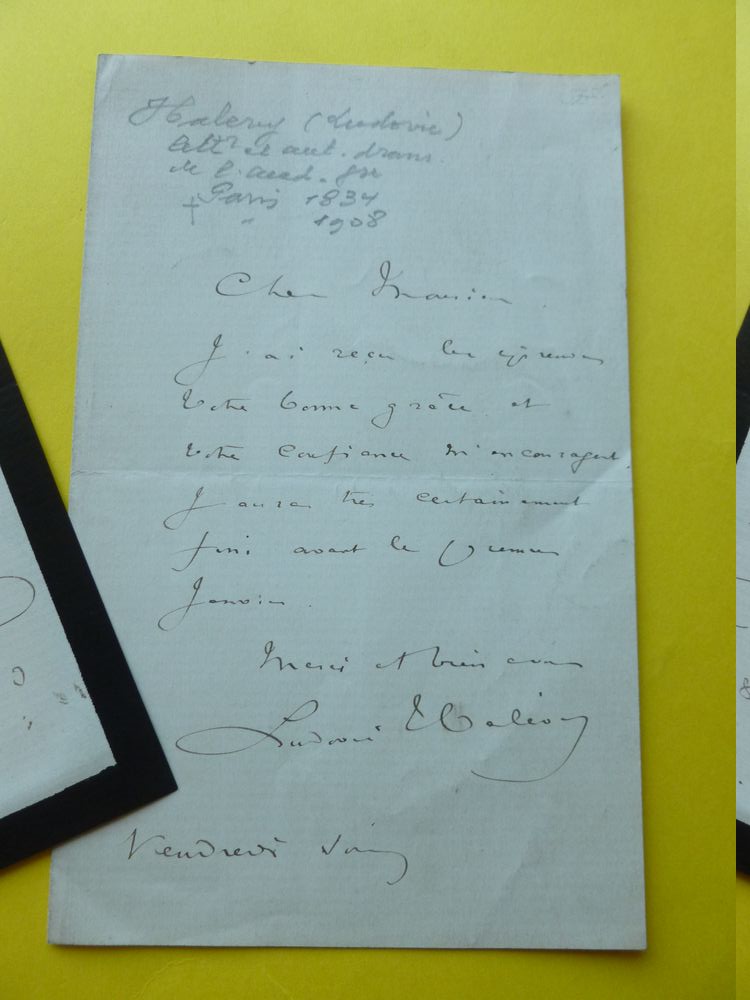 Halevy (Ludovic)
littr et aut. dram.
de l'Acad. fse
Paris 1834
+ " 1908
Cher Monsieur
J'ai reçu les épreuves
Votre bonne grâce et
votre confiance m'encouragent.
J'aurai très certainement
fini avant le premier
Janvier.
Merci et bien à vous
Ludovic Halévy
Vendredi soir